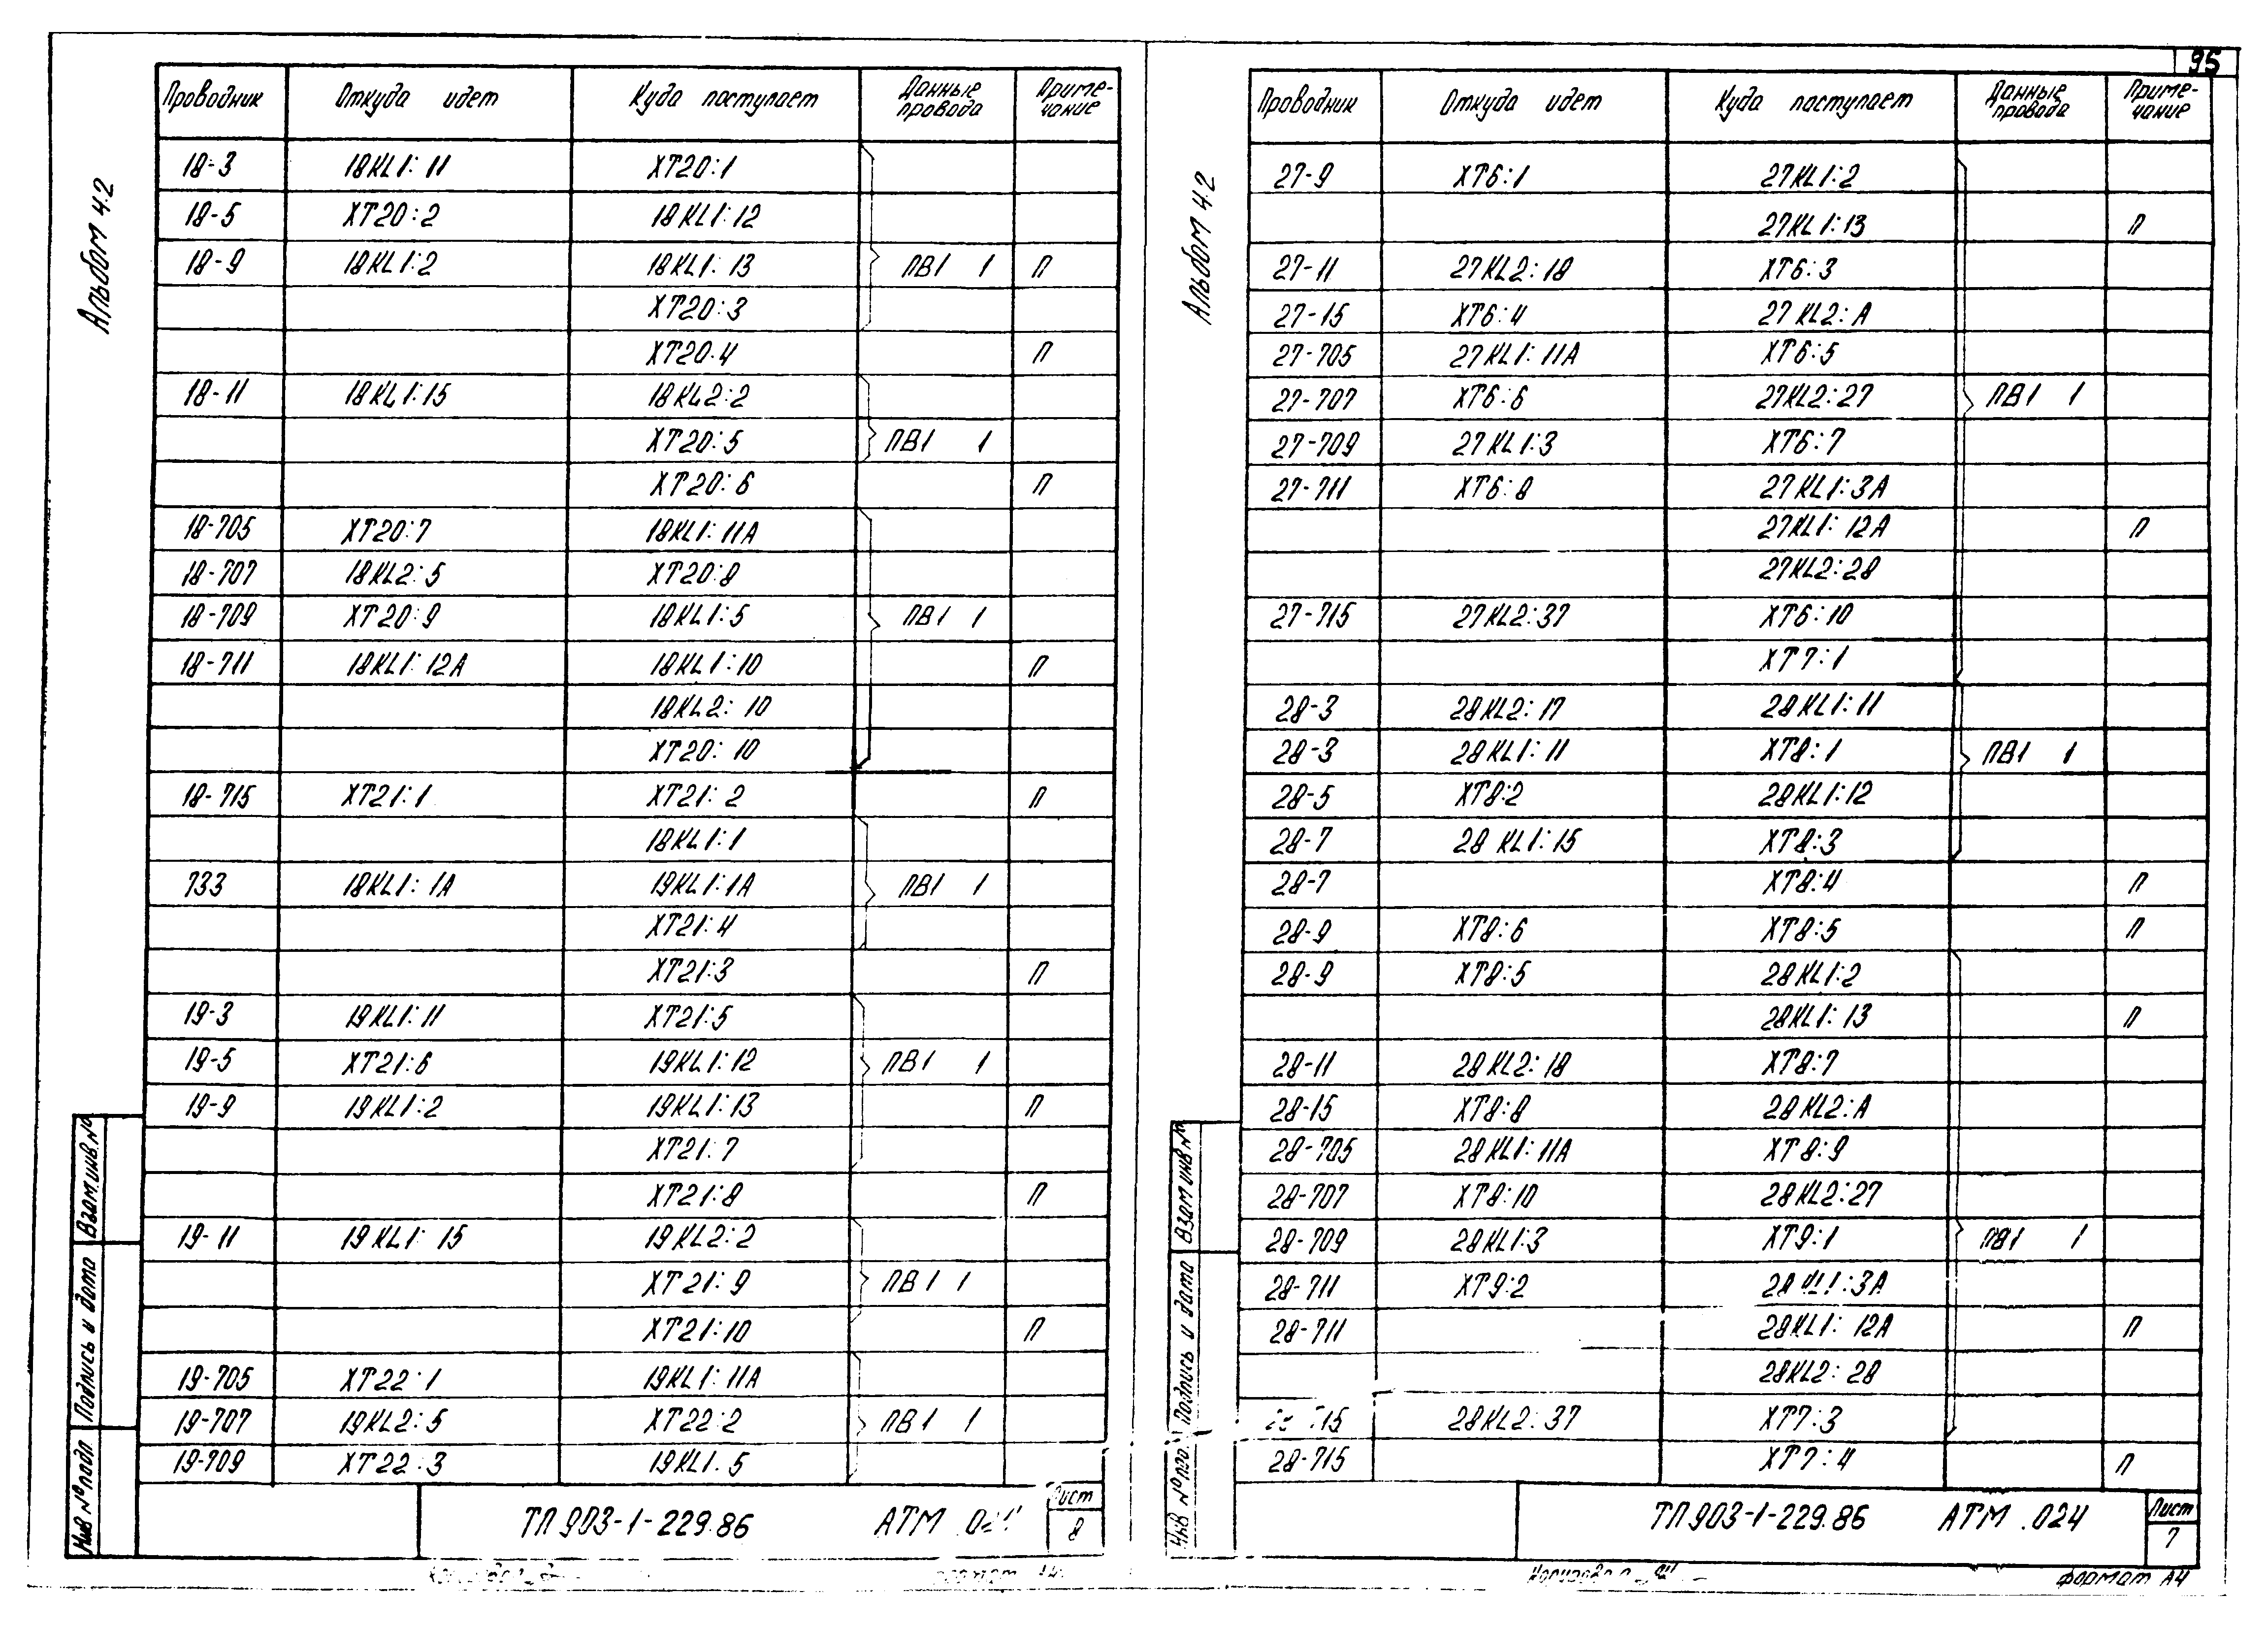 95
Альбом 4.2
Проводник Откуда идет Куда поступает Данные провода Приме-чание
18-3 18KL1:11 XT20:1
18-5 XT20:2 18KL1:12
18-9 18KL1:2 18KL1:13 ПВ1 1 П
XT20:3
XT20.4 П
18-11 18KL1:15 18KL2:2
XT20:5 ПВ1 1
XT20:6 П
18-705 XT20:7 18KL1:11A
18-707 18KL2:5 XT20:8
18-709 XT20:9 18KL1:5 ПВ1 1
18-711 18KL1:12A 18KL1:10 П
18KL2:10
XT20:10
18-715 XT21:1 XT21:2 П
18KL1:1
733 18KL1:1A 19KL1:1A ПВ1 1
XT21:4
XT21:3 П
19-3 19KL1:11 XT21:5
19-5 XT21:6 19KL1:12 ПВ1 1
19-9 19KL1:2 19KL1:13 П
XT21:7
XT21:8 П
19-11 19KL1:15 19KL2:2
XT21:9 ПВ1 1
XT21:10 П
19-705 XT22:1 19KL1:11A
19-707 19KL2:5 XT22:2 ПВ1 1
19-709 XT22:3 19KL1.5
Взам.инв.№
Подпись и дата
Инв №подл
ТП 903-1-229.86 АТМ Лист
8
Альбом 4.2
Проводник Откуда идет Куда поступает Данные провода Приме-чание
27-9 XT6:1 27KL1:2
27KL1:13 П
27-11 27KL2:18 XT6:3
27-15 XT6:4 27KL2:A
27-705 27KL1:11A XT6:5
27-707 XT6:6 27KL2:27 ПВ1 1
27-709 27KL1:3 XT6:7
27-711 XT6:8 27KL1:3A
27KL1:12A П
27KL2:28
27-715 27KL2:37 XT6:10
XT7:1
28-3 28KL2:17 28KL1:11
28-3 28KL1:11 XT8:1 ПВ1 1
28-5 XT8:2 28KL1:12
28-7 28KL1:15 XT8:3
28-7 XT8:4 П
28-9 XT8:6 XT8:5 П
28-9 XT8:5 28KL1:2
28KL1:13 П
28-11 28KL2:18 XT8:7
28-15 XT8:8 28KL2:A
28-705 28KL1:11A XT8:9
28-707 XT8:10 28KL2:27
28-709 28KL1:3 XT9:1 ПВ1 1
28-711 XT9:2 28KL1:3A
28-711 28KL1:12A П
28KL2:28
28KL2:37 XT7:3
28-715 XT7:4 П
Взам инв №
Подпись и дата
Инв №под.
ТП 903-1-229.86 АТМ .024 Лист
7
Формат А4